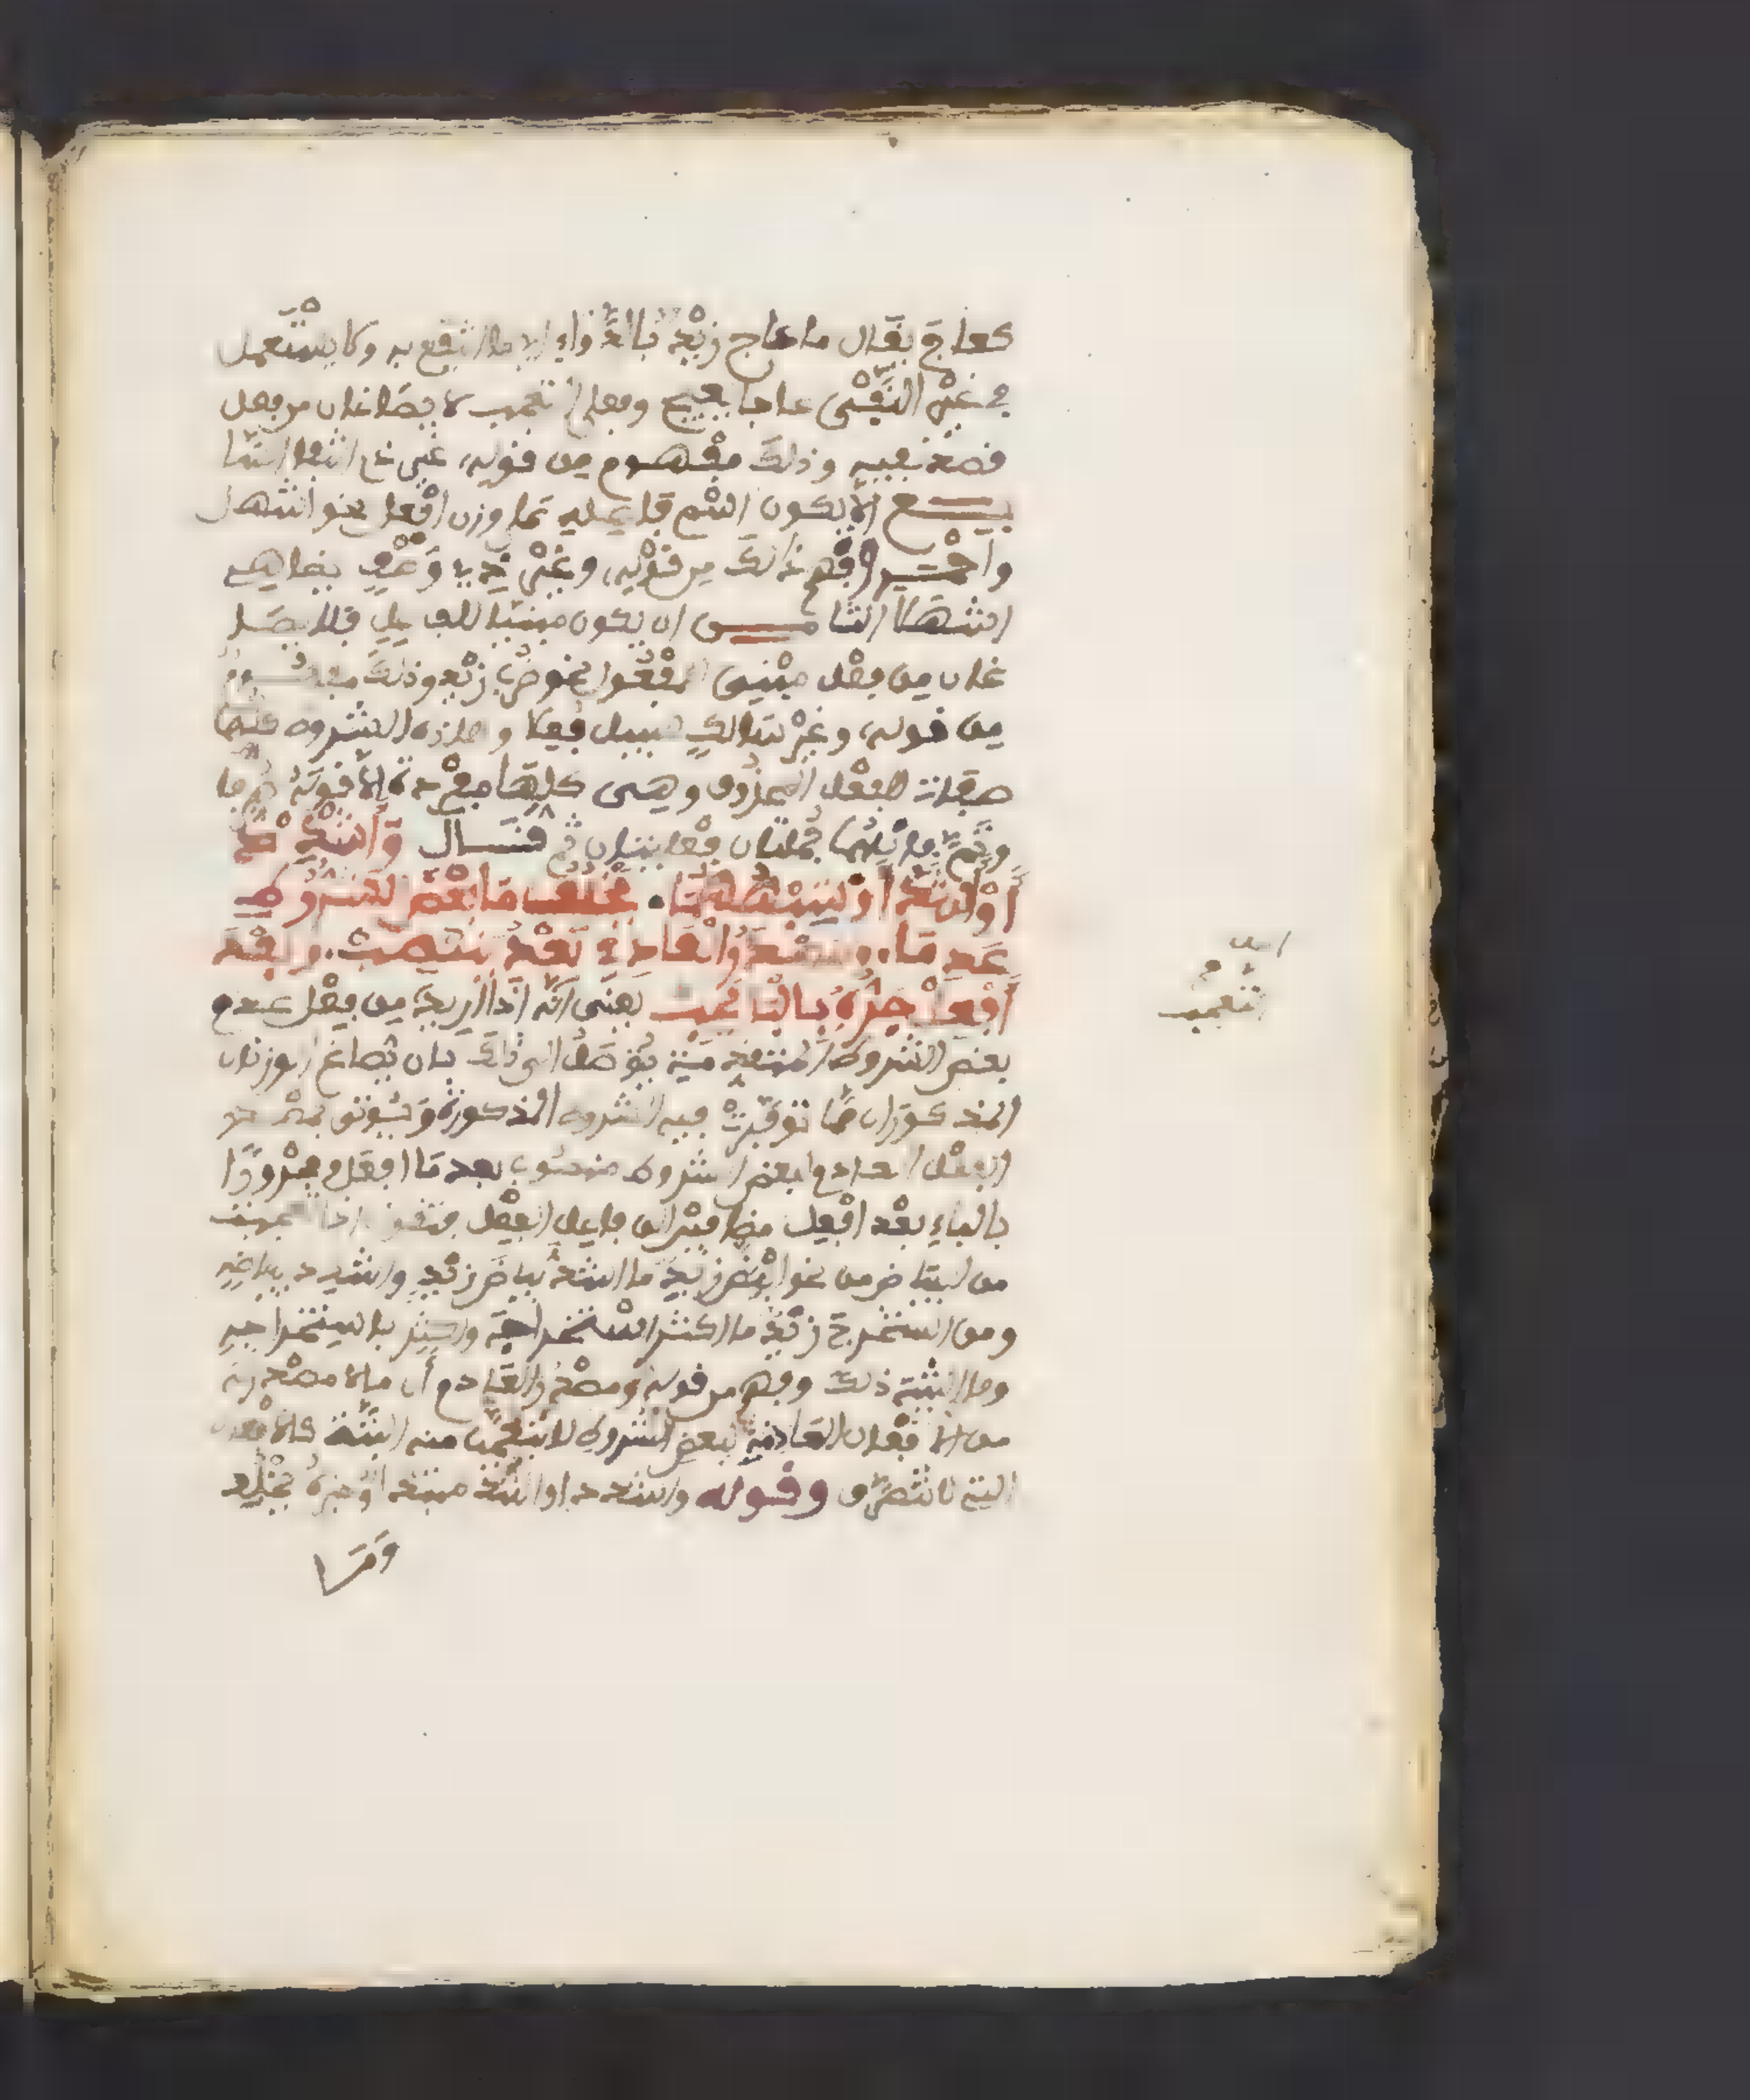 كعاج يقال ما عاج زيد بالدواء اي ما انتفع به ولا يستعمل
في غير النفي عاجا يعيج وفعلا التعجب لا يصاغان من فعل
قصد نفيه وذلك مفهوم من قوله غير ذي انتفا السا
بع الا يكون اسم فاعله على وزن افعل نحو اشهل
واحمر وفهم ذلك من قوله وغير ذي وصف يضاهي
اشهلا الثامن ان يكون مبنيا للفاعل فلا يصا
غان من فعل مبني للمفعول نحو ضرب زيد وذلك مفهوم
من قوله وغير سالك سبيل فعلا وهذه الشروط كلها
صفات لفعل المحذوف وهي كلها مفردة الا قوله صرفا
وتم فانهما جملتان فعليتان ثم قال وأشدد
أو أشد أو شبههما يخلف ما بعض الشروط
عدما ومصدر العادم بعد ينتصب وبعد
أفعل جره بالبا يجب يعني انه اذا اريد من فعل عدم
بعض الشروط المتعجب منه يتوصل الى ذلك بان يصاغ الوزنان
المذكوران مما توفرت فيه الشروط المذكورة ويوتى بمصدر
الفعل العادم لبعض الشروط منصوب بعد ما افعل ومجرورا
بالباء بعد افعل مضافين الى فاعل الفعل فتقول اذا تعجبت
من البياض من نحو ابيض زيد ما اشد بياض زيد واشدد ببياضه
ومن استخرج زيد ما اكثر استخراجه واكثر باستخراجه
وما اشبه ذلك وفهم من قوله ومصدر العادم أن ما لا مصدر له
من الافعال العادمة لبعض الشروط لا يتعجب منه البتة كالافعال
التي لا تتصرف وقوله واشدد او اشد مبتدا وخبره يخلف
وما
التعجب